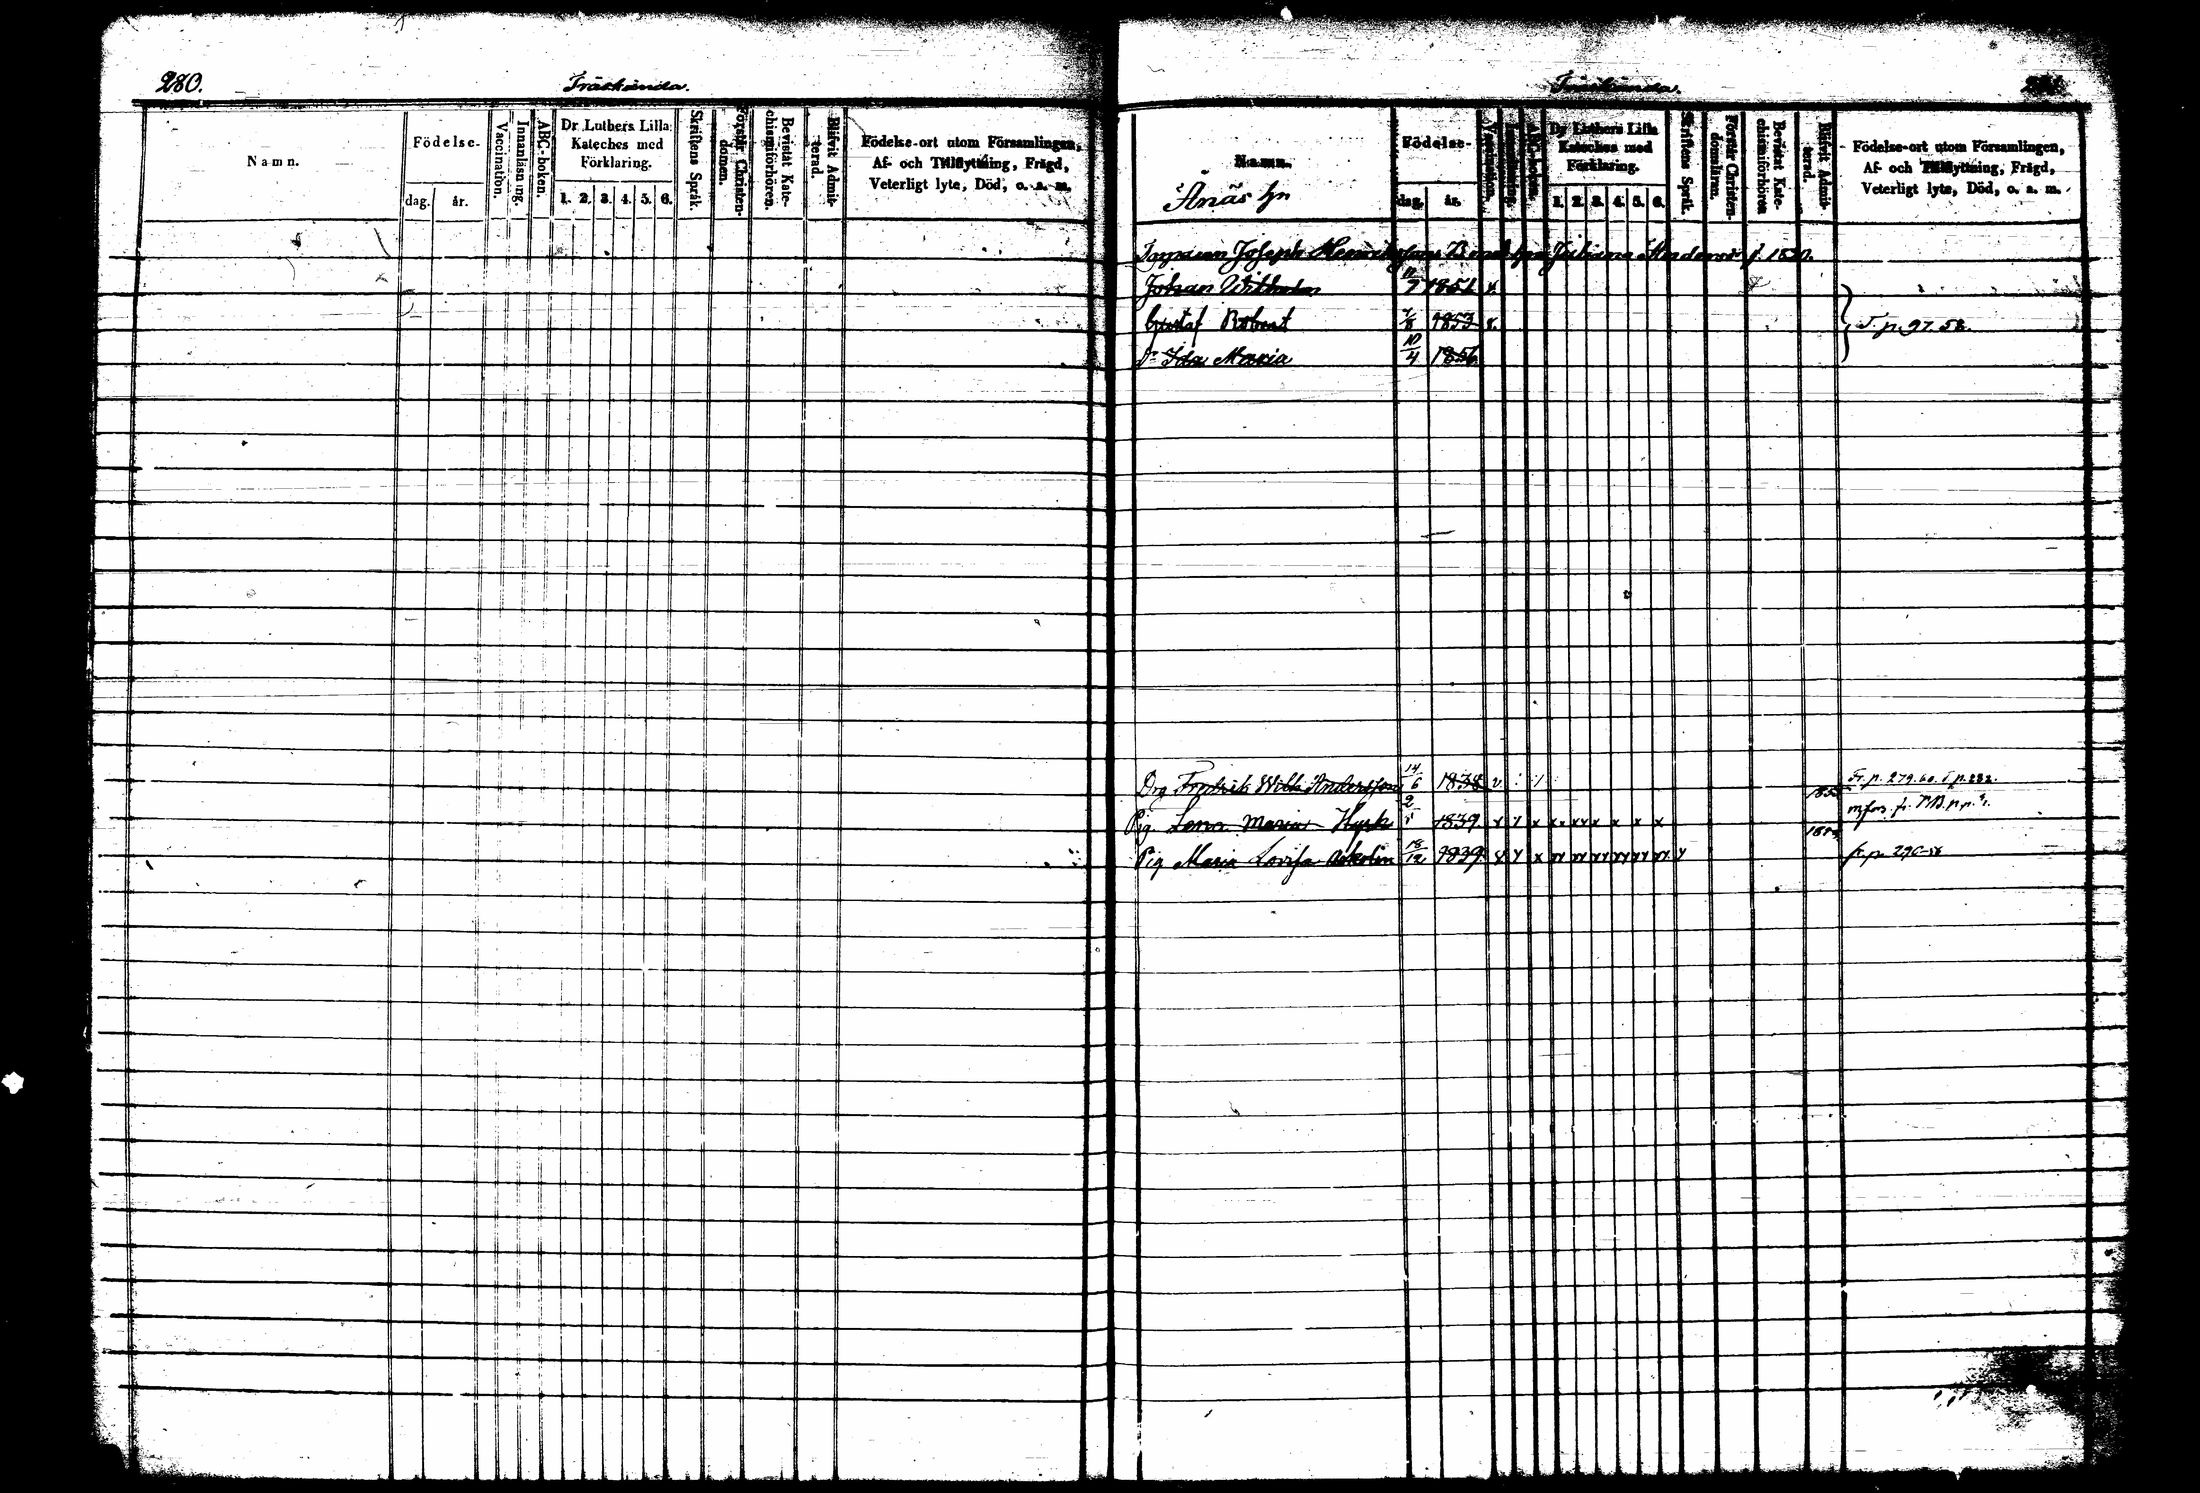 280.
Träskända.
Namn.
Födelse-
dag.
år.
Vaccination.
Innanläsning.
ABC-boken.
Dr Luthers Lilla
Kateches med
Förklaring.
1. 2. 3. 4. 5. 6.
Skriftens Språk.
Förstår Christen-
domen.
Bevistat Kate-
chismiförhören.
Blifvit Admit-
terad.
Födelse-ort utom Församlingen,
Af- och Tillflyttning, Frägd,
Veterligt lyte, Död, o. a. m.
Träskända.
Namn.
Ånäs hn
Födelse-
dag.
år.
Vaccination.
Innanläsning.
ABC-boken.
Dr Luthers Lilla
Kateches med
Förklaring.
1. 2. 3. 4. 5. 6.
Skriftens Språk.
Förstår Christen-
domsläran.
Bevistat Kate-
chismiförhören
Blifvit Admit-
terad.
Födelse-ort utom Församlingen,
Af- och Tillflyttning, Frägd,
Veterligt lyte, Död, o. a. m.
Joseph
Johan Wilhelm 11/7 1851 v.
Gustaf Robert 7/8 1853 v. T. p. 97. 58.
Dr Ida Maria 10/4 1856
Drg Fredrik Wilh Andersson 14/6 1838 v Fr. p. 279. 60. T p. 282.
Pig. Lena Maria 2 1839 x y x x x x x x x
Pig Maria Lovisa Askolin 18/12 1839 x y x fr. p. 290-58